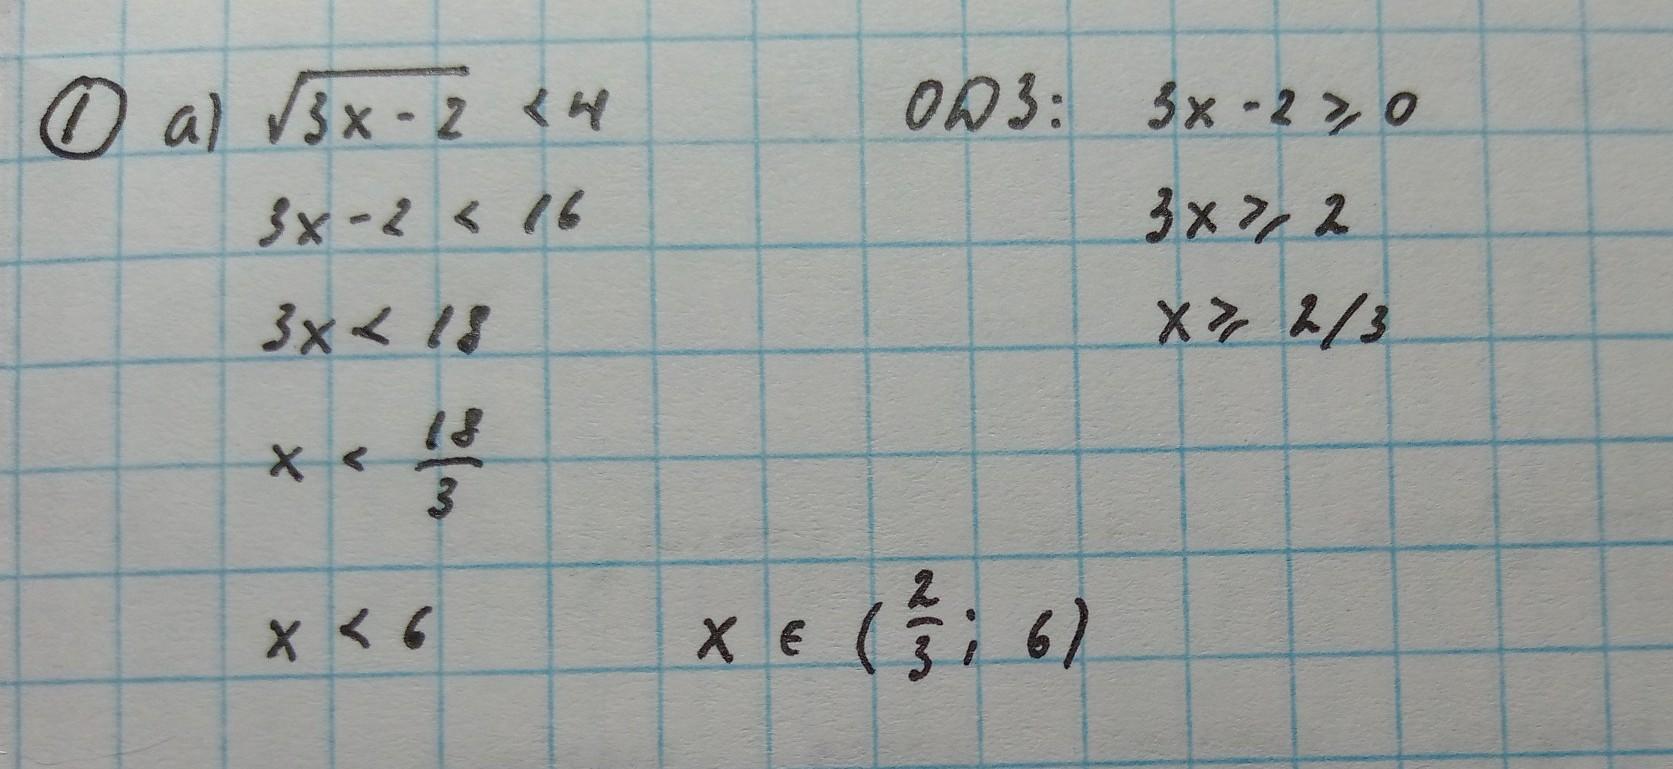 ① а) √3x-2 < 4 ОДЗ: 3x-2 ⩾ 0
3x-2 < 16 3x ⩾ 2
3x < 18 x ⩾ 2/3
x < 18/3
x < 6 x ∈ (2/3; 6)